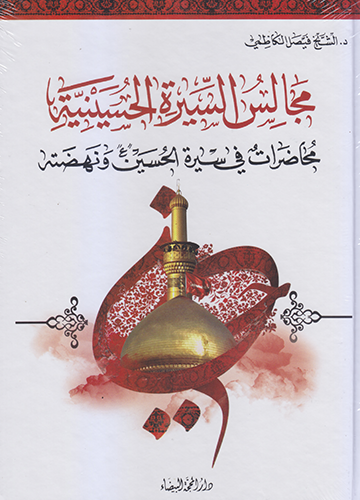 د. الشيخ فيصل الكاظمي
مجالس السيرة الحسينية
محاضرات في سيرة الحسين "ع" ونهضته
دار المحجة البيضاء